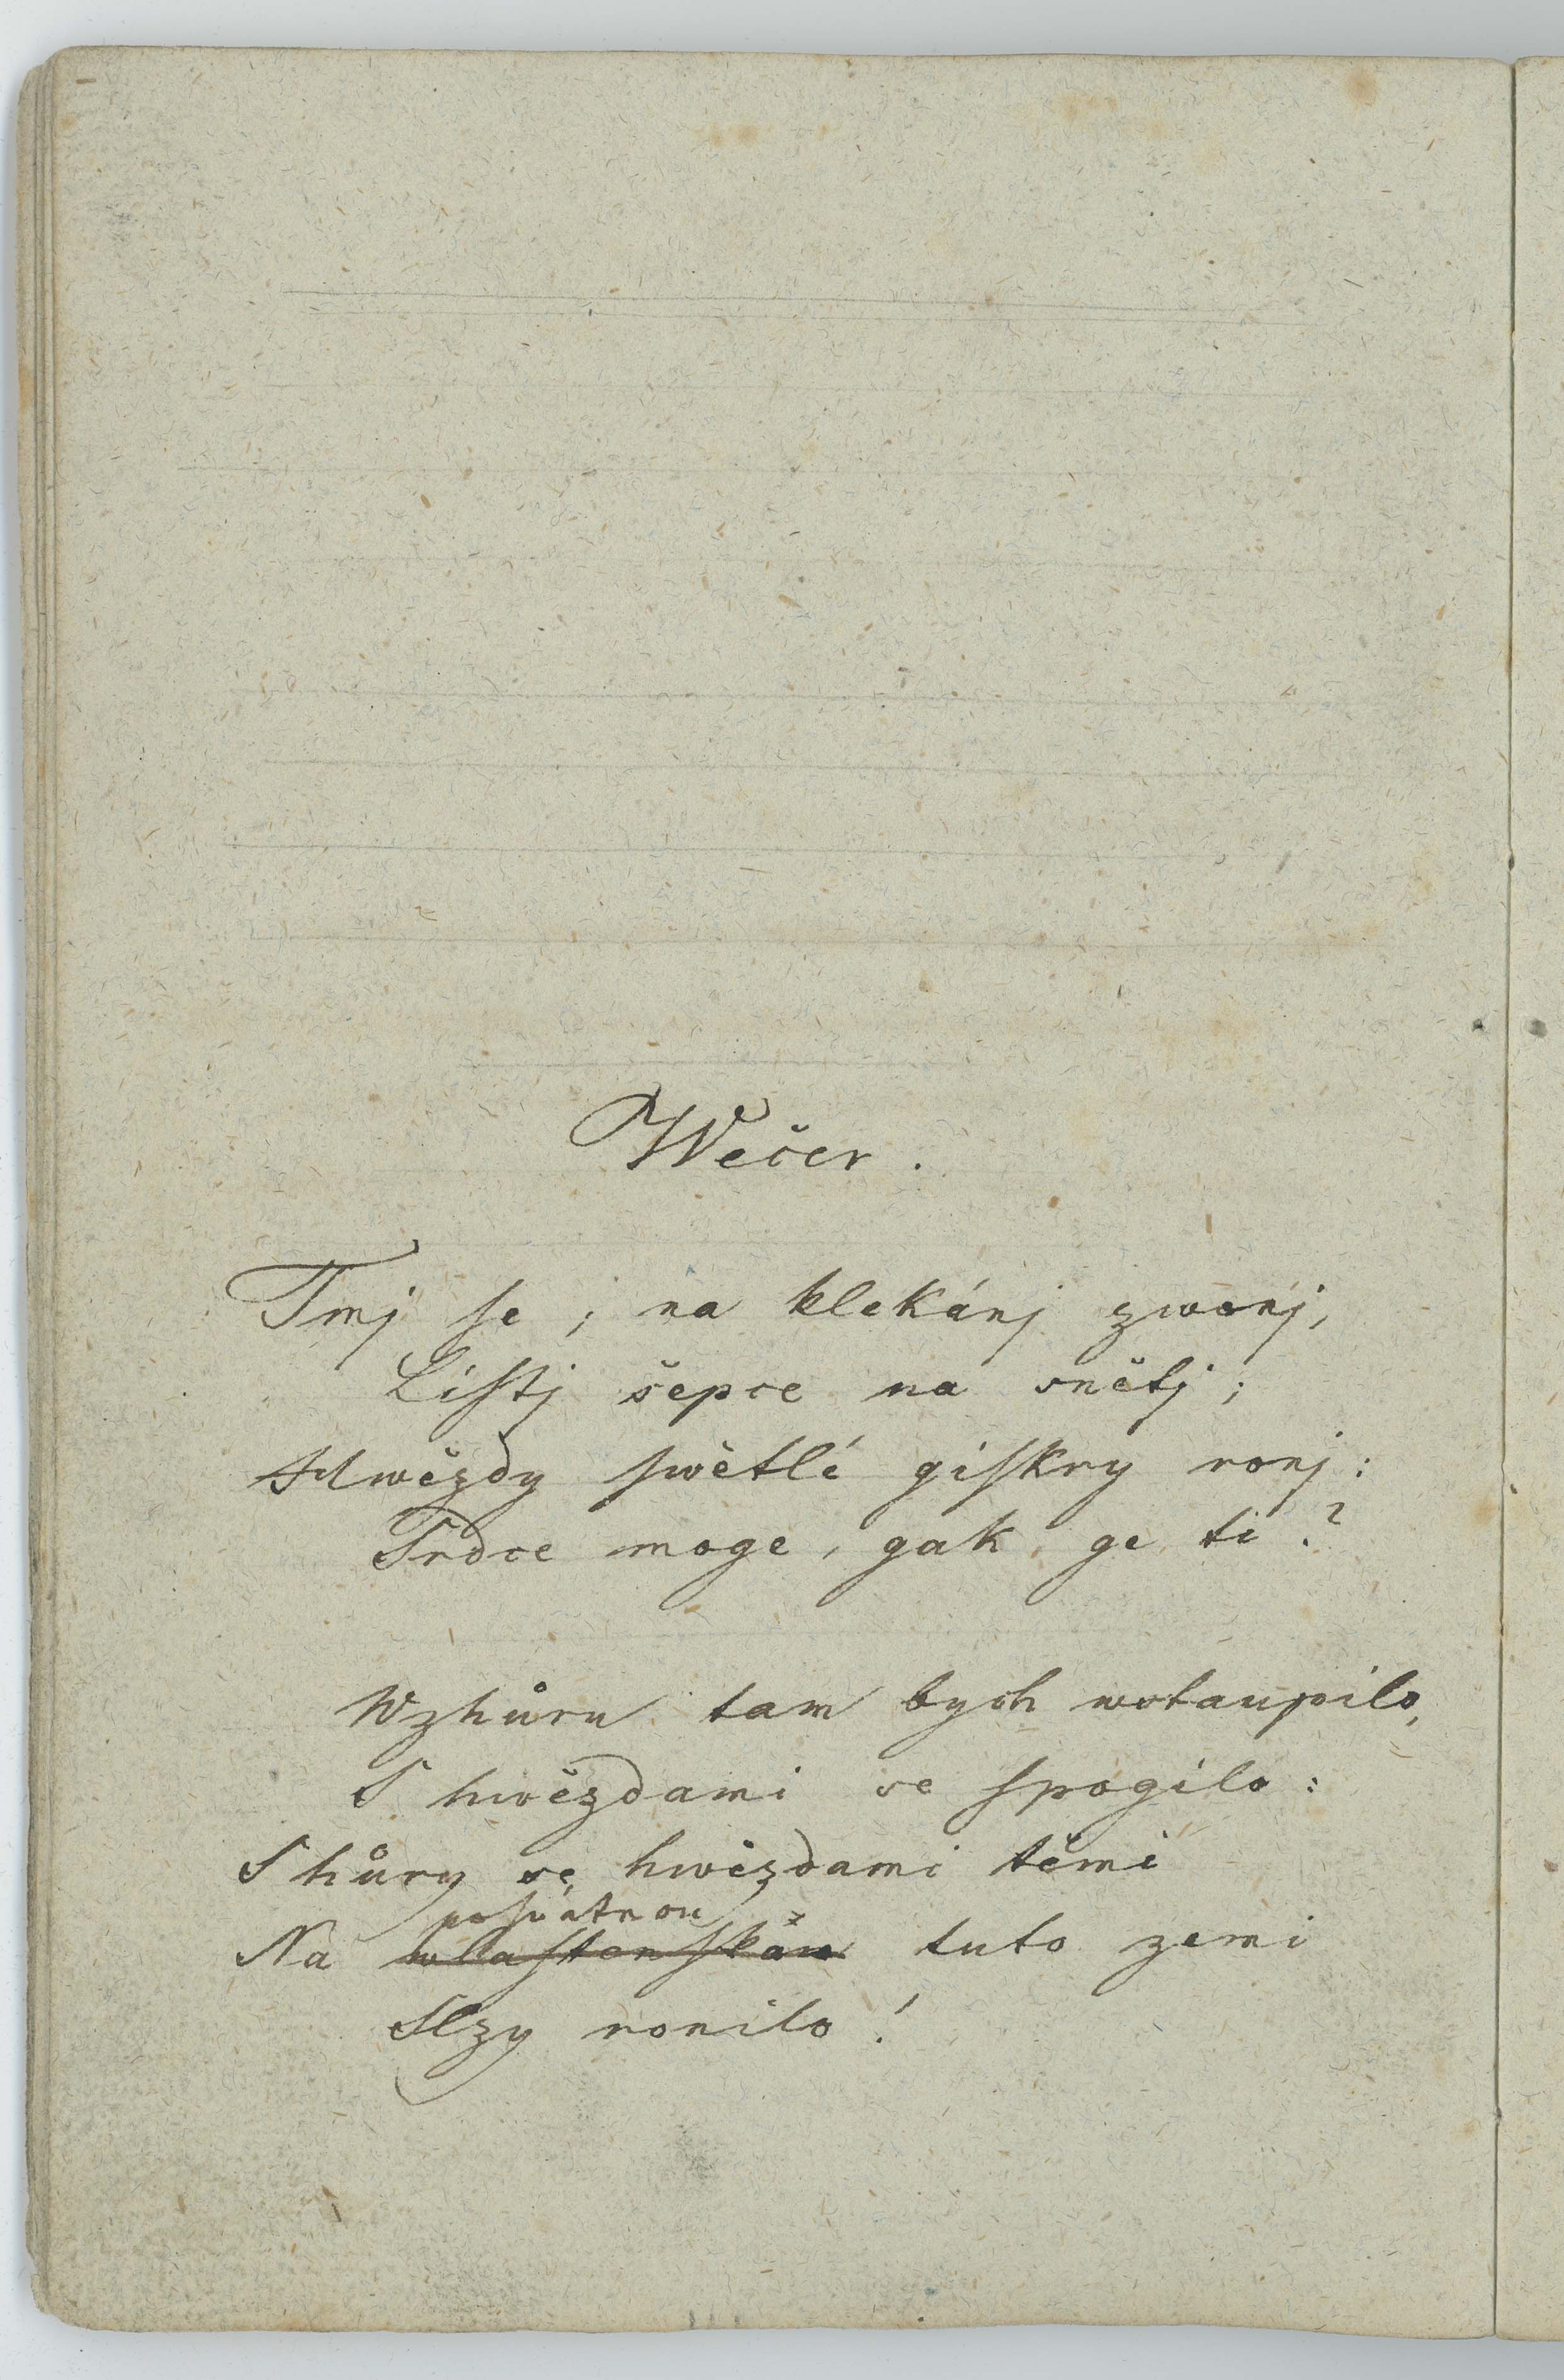 Wečer.
Tmj se; na klekánj zwonj,
Listj šepce na snětj;
Hwězdy swětlé giskry ronj:
Srdce moge, gak ge ti?
Wzhůru tam bych wstaupilo,
S hwězdami se spogilo:
S hůry se hwězdami těmi
poswátnou
Na wlastenskau tuto zemi
Slzy ronilo!